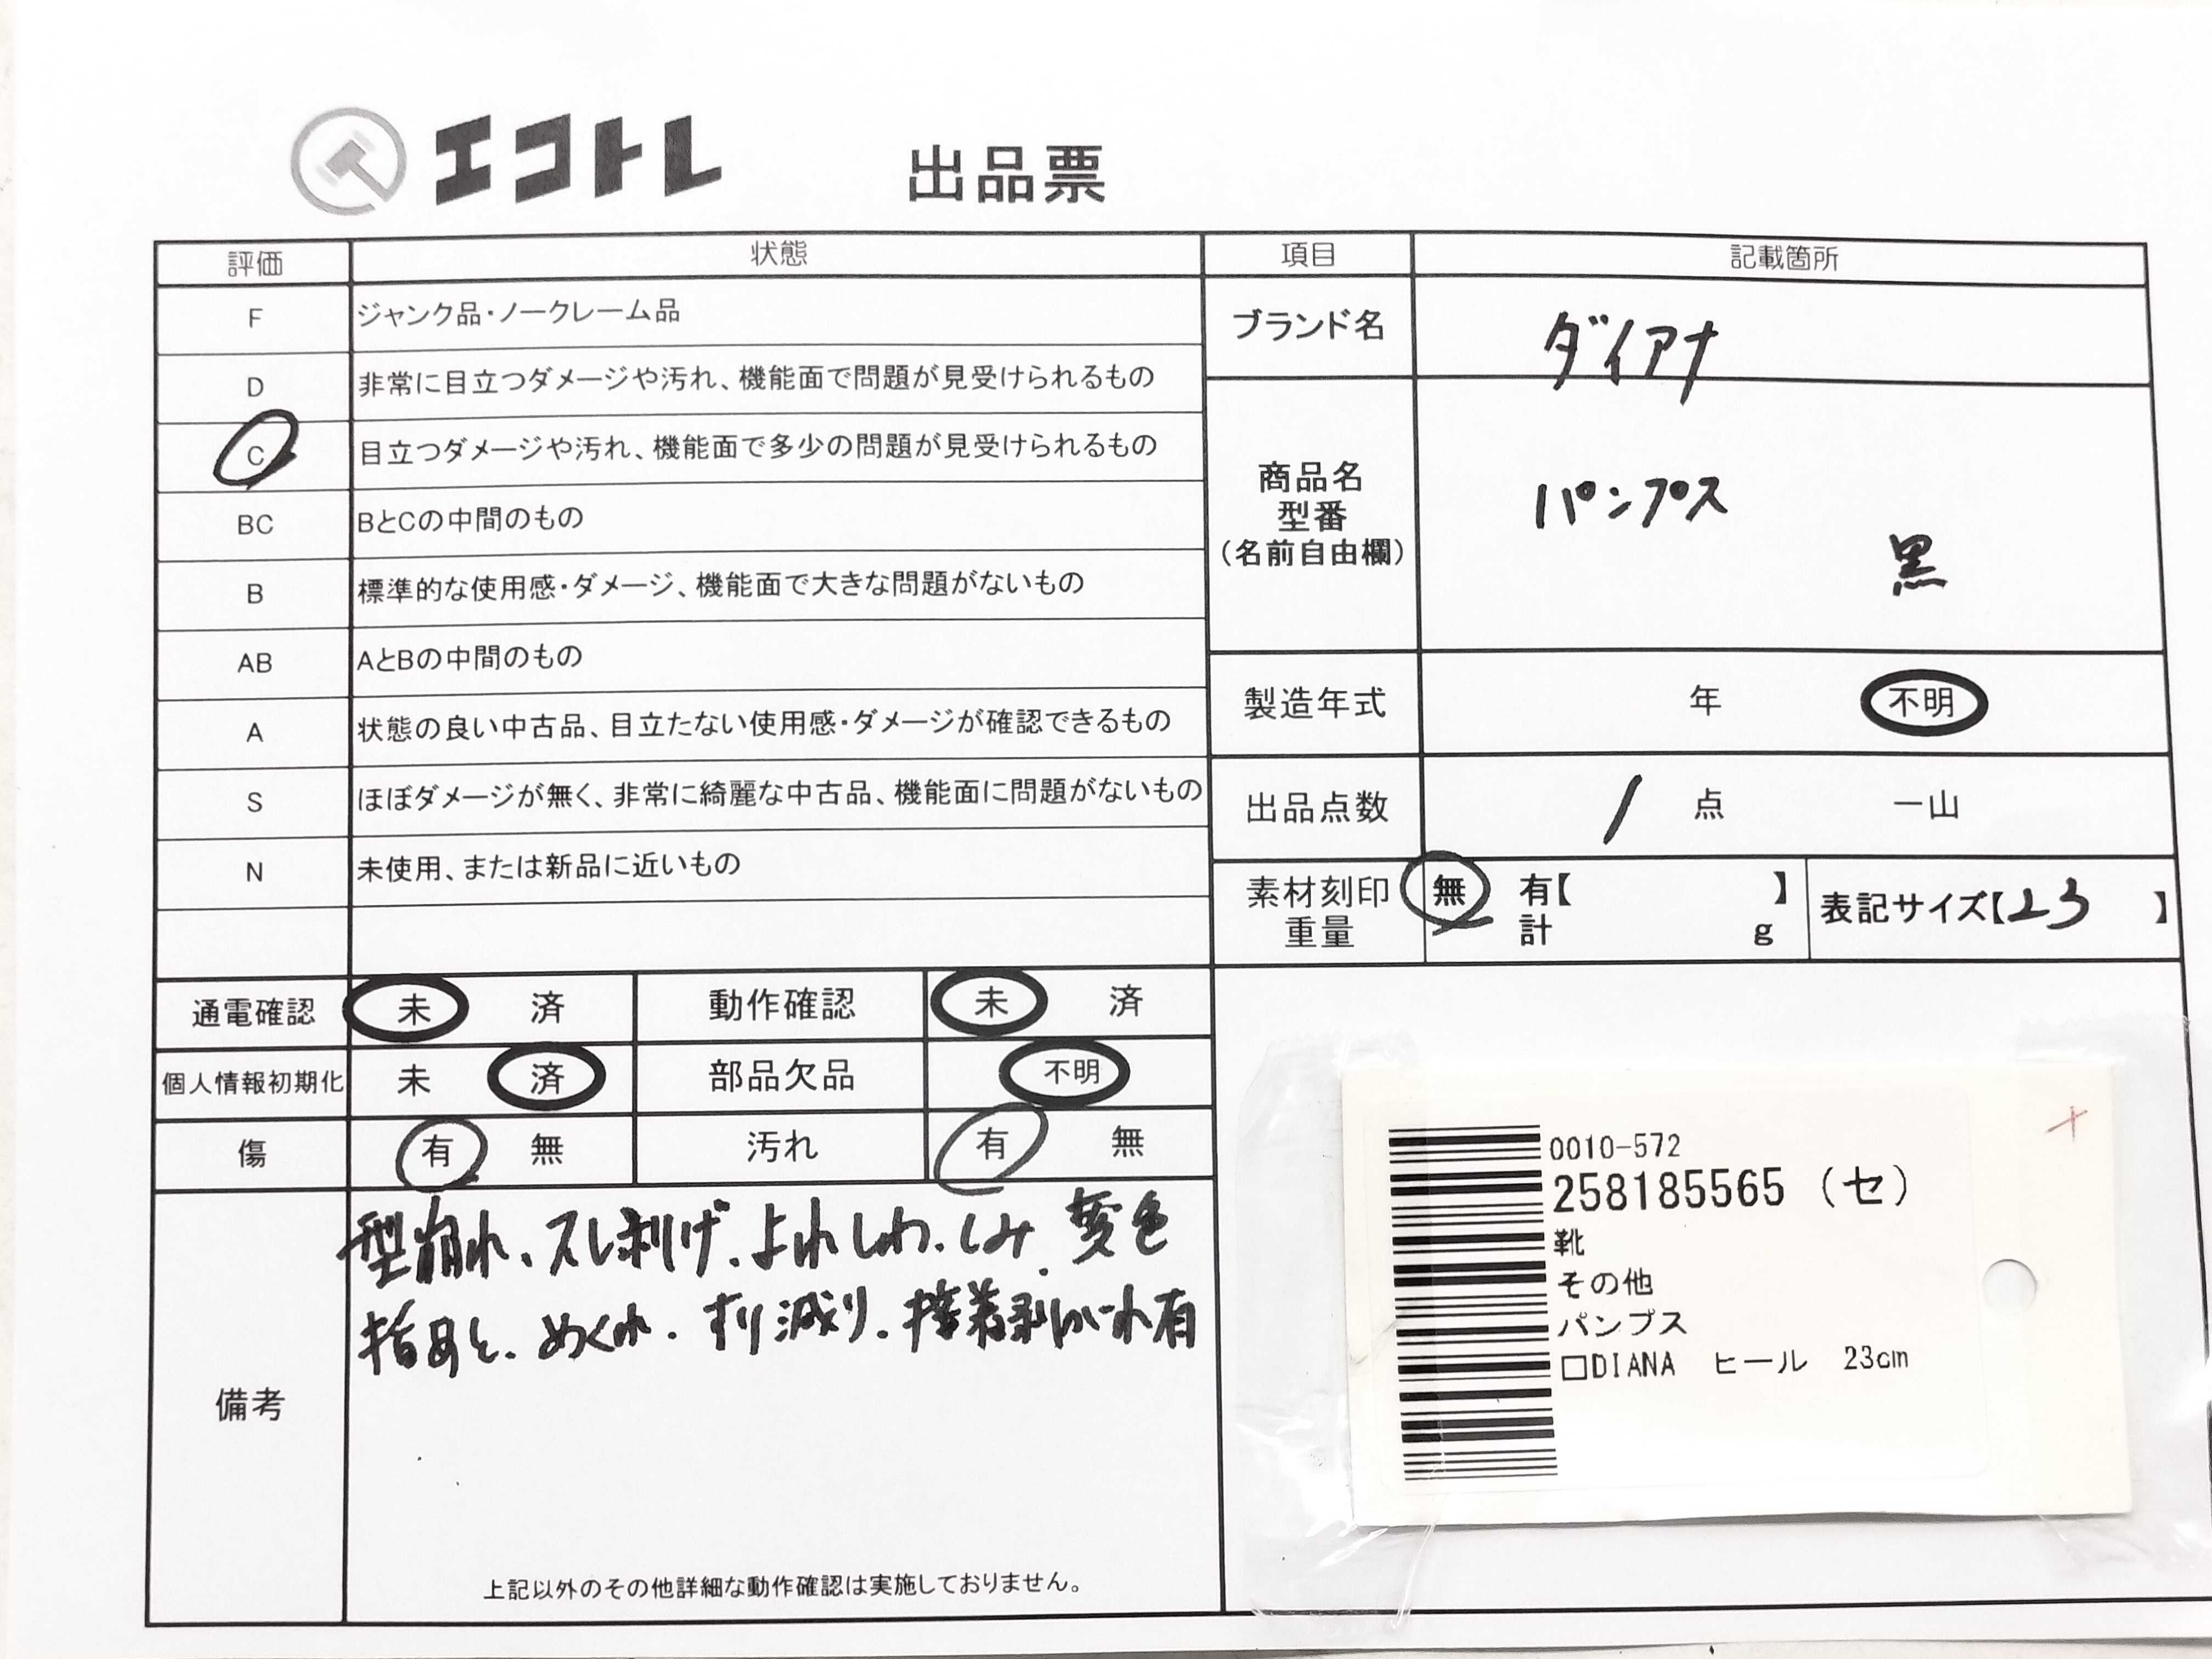 エコトレ 出品票
評価 状態 項目 記載箇所
F ジャンク品・ノークレーム品
D 非常に目立つダメージや汚れ、機能面で問題が見受けられるもの
C 目立つダメージや汚れ、機能面で多少の問題が見受けられるもの
BC BとCの中間のもの
B 標準的な使用感・ダメージ、機能面で大きな問題がないもの
AB AとBの中間のもの
A 状態の良い中古品、目立たない使用感・ダメージが確認できるもの
S ほぼダメージが無く、非常に綺麗な中古品、機能面に問題がないもの
N 未使用、または新品に近いもの
ブランド名 ダイアナ
商品名
型番
（名前自由欄）
パンプス
黒
製造年式 年 不明
出品点数 1 点 一山
素材刻印 無 有【 】
重量 計 g
表記サイズ【23 】
通電確認 未 済 動作確認 未 済
個人情報初期化 未 済 部品欠品 不明
傷 有 無 汚れ 有 無
備考
型崩れ、スレ剥げ、よれしわ、しみ、変色
指あと、めくれ、すり減り、接着剥がれ有
上記以外のその他詳細な動作確認は実施しておりません。
0010-572
258185565 (セ)
靴
その他
パンプス
□DIANA ヒール 23cm